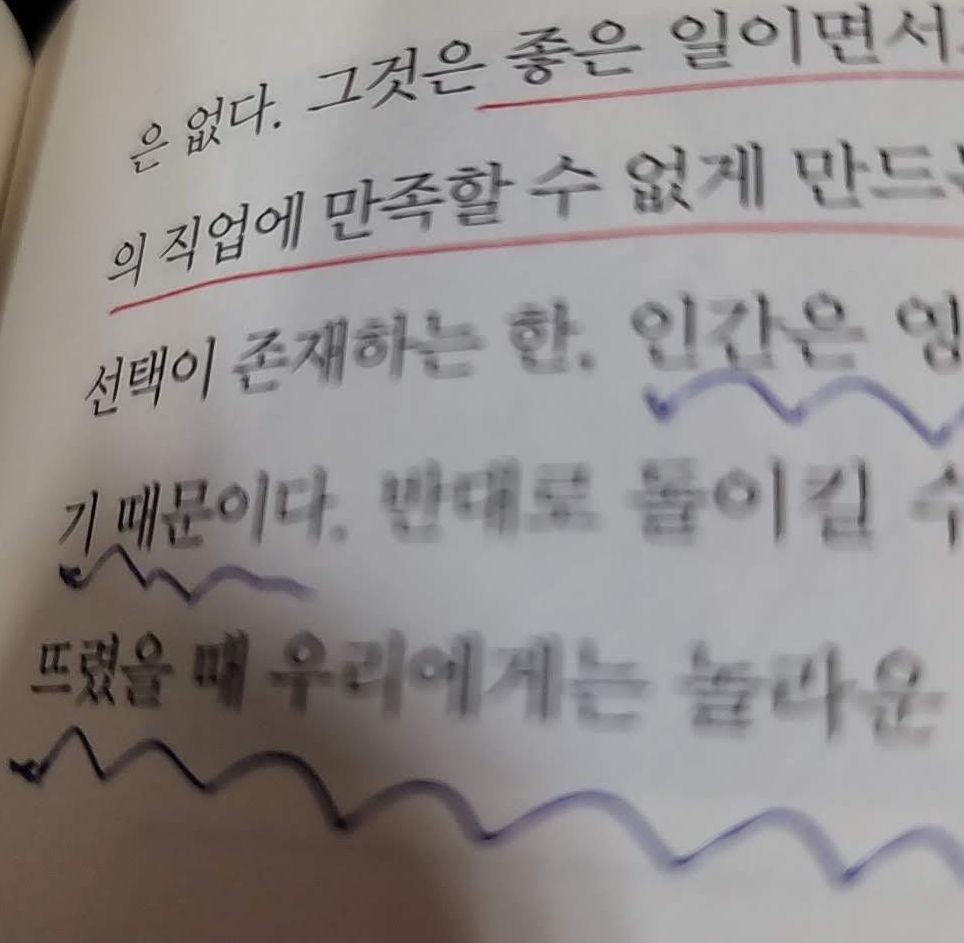 은 없다. 그것은 좋은 일이면서
의 직업에 만족할 수 없게 만드
선택이 존재하는 한. 인간은
기 때문이다. 반대로 돌이킬 수
뜨렸을 때 우리에게는 놀라운